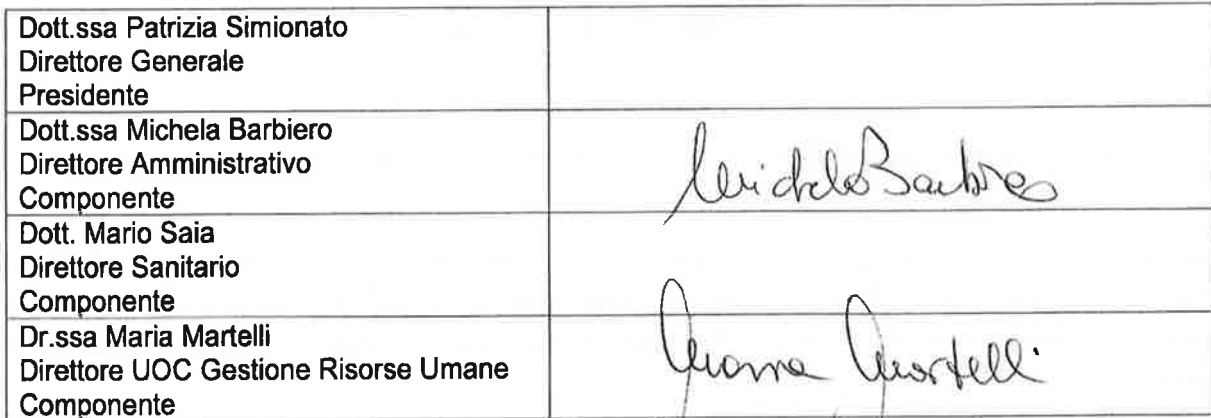 Dott.ssa Patrizia Simionato
Direttore Generale
Presidente
Dott.ssa Michela Barbiero
Direttore Amministrativo
Componente
Michela Barbiero
Dott. Mario Saia
Direttore Sanitario
Componente
Dr.ssa Maria Martelli
Direttore UOC Gestione Risorse Umane
Componente
Maria Martelli